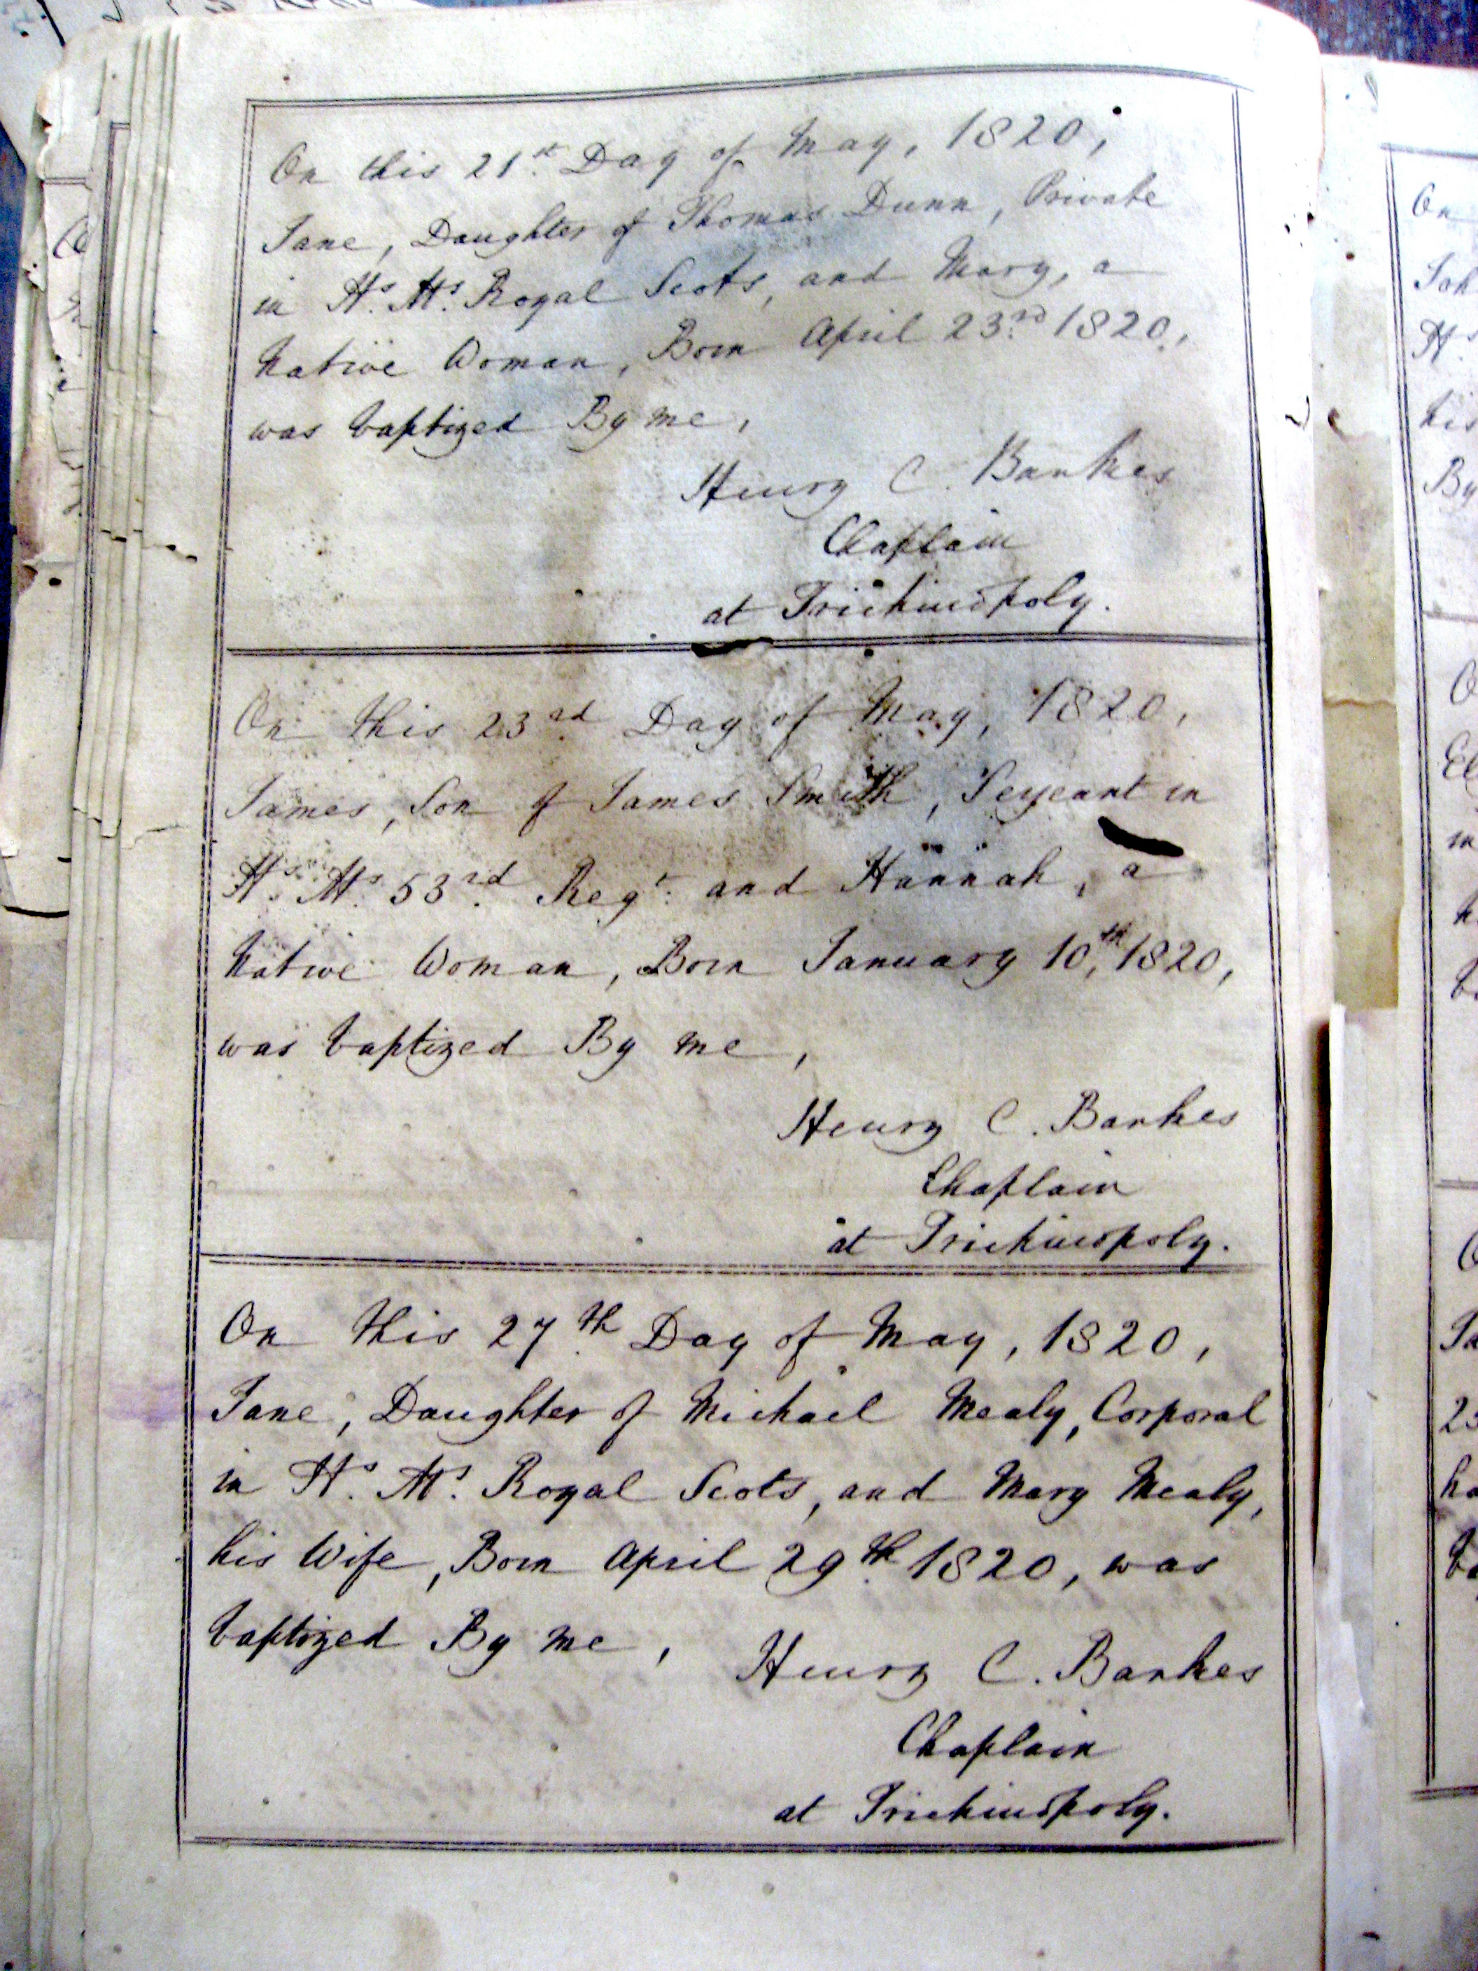 On this 21st Day of May, 1820,
Jane, Daughter of Thomas Dunn, Private
in Hs. Ms. Royal Scots, and Mary, a
Native Woman, Born April 23rd 1820,
was baptized By me,
Henry C. Bankes
Chaplain
at Trichinopoly.
On this 23rd Day of May, 1820,
James, Son of James Smith, Serjeant in
Hs. Ms. 53rd Regt. and Hannah, a
Native Woman, Born January 10th, 1820,
was baptized By me,
Henry C. Bankes
Chaplain
at Trichinopoly.
On this 27th Day of May, 1820,
Jane, Daughter of Michael Mealy, Corporal
in Hs. Ms. Royal Scots, and Mary Mealy,
his Wife, Born April 29th 1820, was
baptized By me,
Henry C. Bankes
Chaplain
at Trichinopoly.
On
H
his
By
in